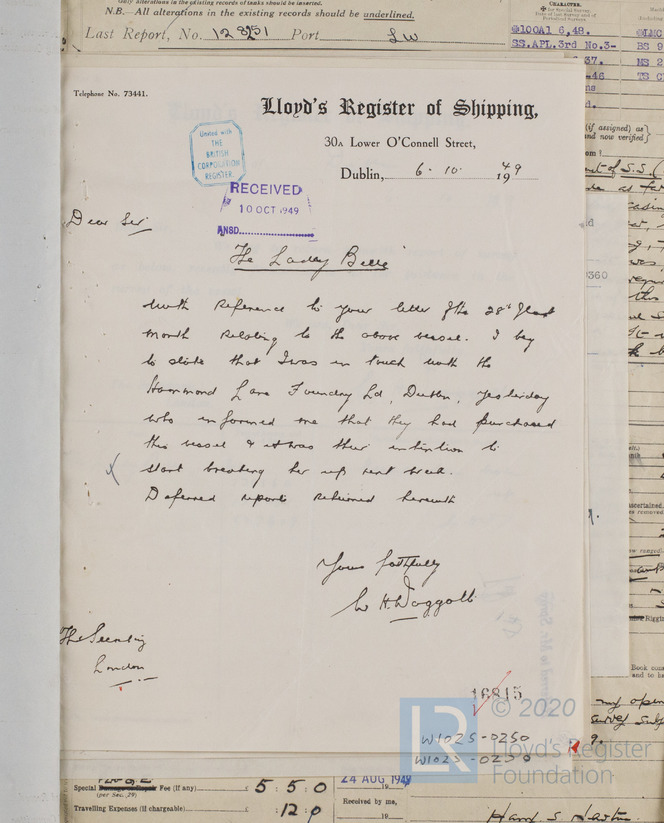 Only alterations in the existing records of tasks should be inserted.
N.B. All alterations in the existing records should be underlined.
Last Report, No. Port LW
CHARACTER.
✠100A1 6,48.
SS.APL.3rd No.3-
37.
-46
d.
BS 9
MS 2
(if assigned) as
and now verified)
Telephone No. 73441.
Lloyd's Register of Shipping,
30A Lower O'Connell Street,
Dublin, 6. 10. 1949
United with
THE
BRITISH
CORPORATION
REGISTER.
RECEIVED
10 OCT 1949
ANSD.
Dear Sir
The Lady Belle
With reference to your letter of the 28th of last
month relating to the above vessel. I beg
to state that I was in touch with the
Hammond Lane Foundry Ld, Dublin, yesterday
who informed me that they had purchased
this vessel & it was their intention to
start breaking her up next week.
Deferred report returned herewith
Yours faithfully
W. H. Waggott
The Secretary
London
16815
W1025-0250
W1025-0250
LR
© 2020
Lloyd's Register
Foundation
0360
Book
and to
my opin
survey
Special Damage or Repair Fee (if any) £ 5 : 5 : 0
(per Sec. 29)
Travelling Expenses (if chargeable) £ : 12 : 0
24 AUG 1949
19
Received by me,
19
Harry S. Newton